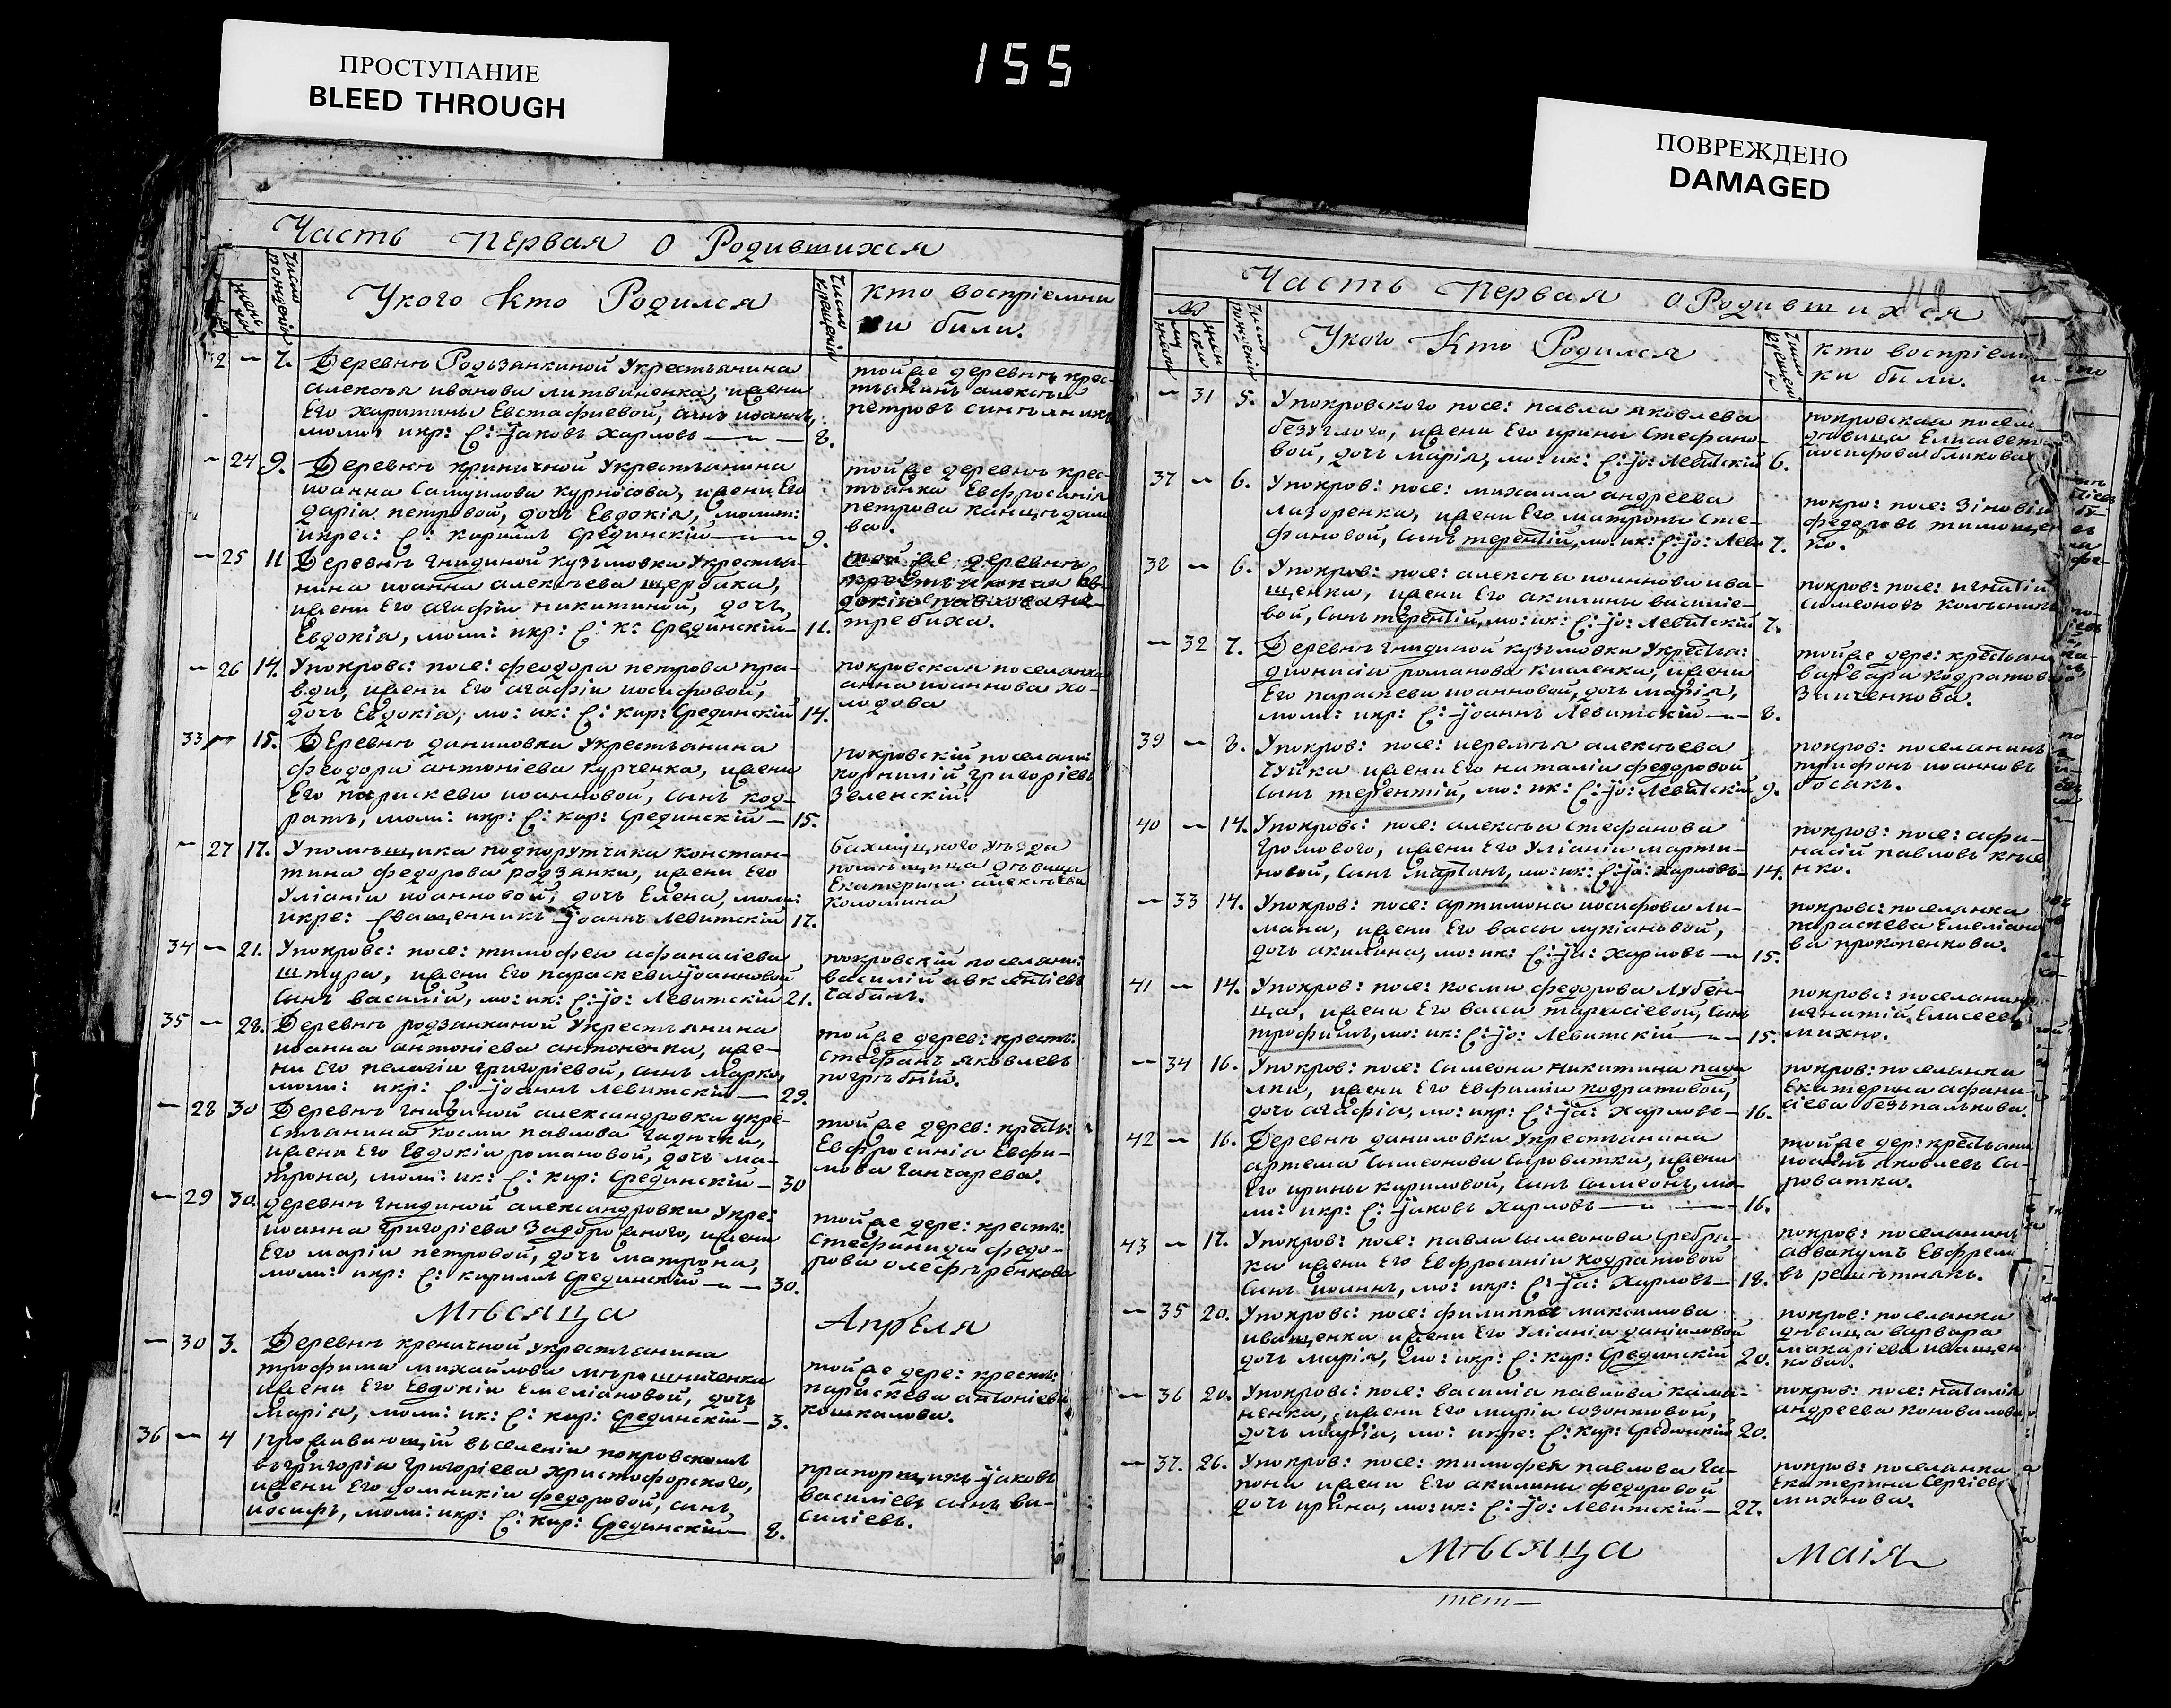 ПРОСТУПАНИЕ
BLEED THROUGH
155
ПОВРЕЖДЕНО
DAMAGED
Часть первая о Родившихся
Число рожденія
Укого кто Родился
Число крещенія
кто воспріемни
ки были.
32 — 7. Деревнѣ Родзянкиной Укрестьянина
алексѣя иванова литвиненка, жены
Его харитины Евстафиевой, сынъ иоаннъ,
моли: икр: С: Іаковъ Харловъ — 8.
тойже деревнѣ крес-
тьянинъ алексѣй
петровъ
— 24 9. Деревнѣ криничной Укрестьянина
иоанна Самуилова курносова, жены Его
даріи петровой, дочь Евдокія, молит:
икрес: С: кириллъ Срединскій — 9.
тойже деревнѣ крес-
тьянка Евфросинія
петрова
ва.
— 25 11 Деревнѣ гнидиной кузьмовки Укрестья-
нина иоанна алексѣева щербака,
жены Его агафіи никитиной, дочь
Евдокія, моли: икр: С: К: Срединскій — 11.
тойже деревнѣ
крестьянка Ев-
докія
тревиха.
— 26 14. Упокровс: посе: феодора петрова пра-
вди, жены Его агафіи иосифовой,
дочь Евдокія, мо: ик: С: кир: Срединскій 14.
покровская поселянка
анна иоаннова хо-
лодова
33 — 15. Деревнѣ даниловки Укрестьянина
феодора антоніева курченка, жены
Его параскевы иоанновой, сынъ код-
ратъ, моли: икр: С: кир: Срединскій — 15.
покровскій поселянин
корнилій григоріевъ
Зеленскій.
— 27 17. Упомѣщика подпорутчика констан-
тина федорова родзянки, жены Его
Уліаніи иоанновой, дочь Елена, моли:
икре: Священникъ Іоаннъ Левитскій 17.
бахмуцкого уѣзда
помѣщица дѣвица
Екатерина алексѣева
коломина
34 — 21. Упокровс: посе: тимофея афанасіева
штура, жены Его параскевы Іоанновой
Сынъ василій, мо: ик: С: Іо: Левитскій 21.
покровскій поселяни:
василій авксентіевъ
Чабанъ.
35 — 28. Деревнѣ родзянкиной Укрестьянина
иоанна антоніева антоненка, же-
ны Его пелагіи григоріевой, сынъ марко,
моли: икр: С: Іоаннъ Левитскій — 29.
тойже дерев: крестъ:
Стефанъ яковлевъ
погрѣбній.
— 28 30 Деревнѣ гнидиной александровки укре-
стьянина косми павлова гадючки,
жены Его Евдокіи романовой, дочь ма-
трона, моли: ик: С: кир: Срединскій — 30
тойже дерев: крестъ:
Евфросинія Евфи-
мова ганчарева.
— 29 30. деревнѣ гнидиной александровки Укре:
иоанна григоріева Задорожного, жены
Его маріи петровой, дочь матрона,
моли: икр: С: кириллъ Срединскій — 30.
тойже дере: крестъ:
Стефанида федо-
рова олефѣренкова
Мѣсяца Апрѣля
— 30 3. Деревнѣ креничной укрестьянина
трофима михайлова мѣрошниченка
жены Его Евдокіи Емеліановой, дочь
марія, моли: ик: С: кир: Срединскій — 3.
тойже дере: крестъ:
параскева антоніева
кошкалова.
36 — 4 проживающій вѣселеніи покровскомъ
въгригорія григоріева христофорского,
жены Его домникіи федоровой, сынъ
иосифъ, моли: икр: С: кир: Срединскій — 8.
прапорщикъ Іаковъ
василіевъ сынъ ва-
силіевъ.
Часть первая о Родившихся
Укого Кто Родился
кто воспріем
ки были.
— 31 5. Упокровского посе: павла яковлева
безуглого, жены Его ирины Стефано-
вой, дочь марія, мо: ик: С: Іо: Левитскій 6.
покровская посел
дѣвица Елисавет
иосифова бликова
37 — 6. Упокров: посе: михаила андреева
лазоренка, жены Его матроны Сте-
фановой, сынъ терентій, мо: ик: С: Іо: Леви 7.
покро: посе: Зіновій
федоровъ тимощен
ко.
38 — 6. Упокров: посе: алексѣя иоаннова ива-
щенка, жены Его акилины василіе-
вой, Сынъ терентій, мо: ик: С: Іо: Левитскій 7.
покров: посе: игнатій
симеоновъ колѣсник
— 32 7. Деревнѣ гнидиной кузьмовки Укрестья:
дионисія романова кисленка, жены
Его параскевы иоанновой, дочь марія,
моли: икр: С: Іоаннъ Левитскій — 8.
тойже дере: крестьян
варвара кодратова
Зинченкова.
39 — 8. Упокров: посе: иеремѣя алексѣева
Чуйка жены Его наталіи федоровой
Сынъ терентій, мо: ик: С: Іо: Левитскій 9.
покров: поселянинъ
трифонъ иоанновъ
босакъ.
40 — 14. Упокровс: посе: алексѣя Стефанова
громового, жены Его Уліаніи марти-
новой, сынъ мартинъ, мо: ик: С: Іа: Харловъ — 14.
покров: посе: афа-
насій павловъ
нко.
— 33 14. Упокров: посе: артимона иосифова ли-
мана, жены Его вассы лукіановой,
дочь акилина, мо: ик: С: Іа: Харловъ — 15.
покровс: поселянка
параскева Емеліано
ва прокопенкова.
41 — 14. Упокров: посе: косми федорова лубен-
ца, жены Его васси тарасіевой, сынъ
трофимъ, мо: ик: С: Іо: Левитскій — 15.
покровс: поселянинъ
игнатій Елисеевъ
михно.
— 34 16. Упокров: посе: Симеона никитина
лки, жены Его Евфиміи кодратовой,
дочь агафія, мо: икр: С: Іа: Харловъ — 16.
покров: поселянка
Екатерина афана
сіева безпалькова.
42 — 16. Деревнѣ даниловки Укрестьянина
артема Симеонова Сыроватки, жены
Его ирины кириловой, сынъ Симеонъ, мо-
ли: икр: С: Іаковъ Харловъ — 16.
тойже дер: крестьяни
иоаннъ яковлевъ Сы-
роватка.
43 — 17. Упокров: посе: павла симеонова Сребря-
ка жены Его Евфросиніи кодратовой
Сынъ иоаннъ, мо: икр: С: Іа: Харловъ — 18.
покров: поселянинъ
аввакумъ Евфремо
въ решѣтнякъ.
— 35 20. Упокровс: посе: филиппа максимова
иващенка жены Его Уліаніи даніиловой
дочь марія, мо: икр: С: кир: Срединскій 20.
покров: поселянка
дѣвица варвара
макаріева иващен
кова.
— 36 20. Упокровс: посе: василія павлова кама-
ненка, жены Его маріи созонтовой,
дочь марія, мо: икре: С: кир: Срединскій 20.
покров: посе: наталія
андреева коновалова
— 37. 26. Упокров: посе: тимофея павлова га-
пони жены Его акилины федоровой
дочь ирина, мо: ик: С: Іо: Левитскій — 27.
покров: поселянка
Екатерина Сергіева
михнова.
Мѣсяца маія